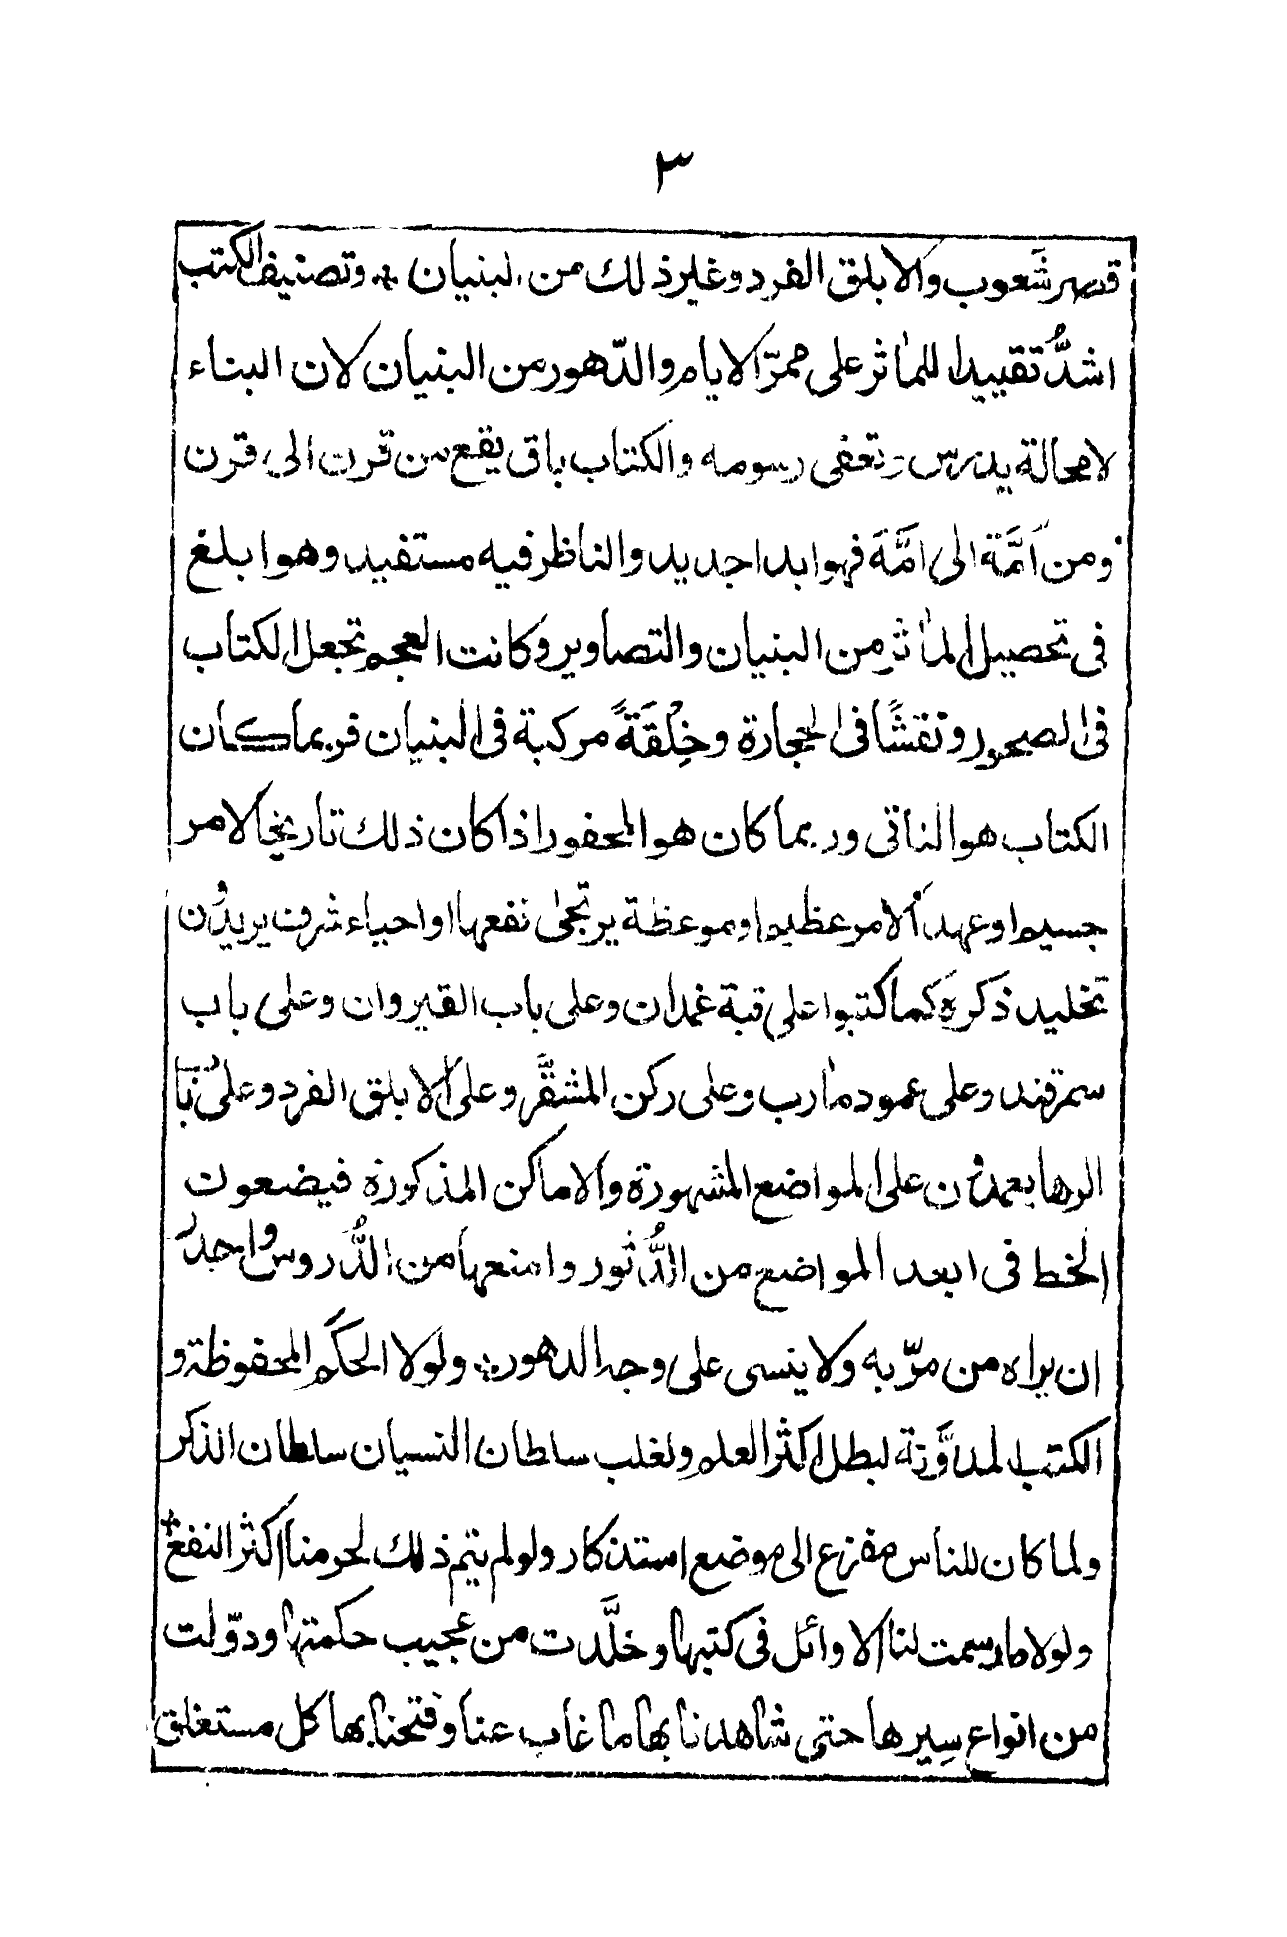 ٣
قصر شَعوب والابلق الفرد وغير ذلك من البنيان * وتصنيف الكتب
اشدُّ تقييدا للمآثر على ممرّ الايام والدّهور من البنيان لان البناء
لا محالة يدرس وتعفى رسومه والكتاب باق يقع من قرن الى قرن
ومن اُمَّة الى اُمَّة فهو ابدا جديد والناظر فيه مستفيد وهو ابلغ
فى تحصيل المآثر من البنيان والتصاوير وكانت العجم تجعل الكتاب
فى الصخور ونقشًا فى الحجارة وخِلْقَةً مركبة فى البنيان فربما كان
الكتاب هو الناتى وربما كان هو المحفور اذا كان ذلك تاريخا لامر
جسيم او عهدا لامر عظيم او موعظة يرتجى نفعها او احياء شرف يريدون
تخليد ذكره كما كتبوا على قبة غمدان وعلى باب القيروان وعلى باب
سمرقند وعلى عمود مأرب وعلى ركن المشقَّر وعلى الابلق الفرد وعلى باب
الرها يعمدون على المواضع المشهورة والاماكن المذكورة فيضعون
الخط فى ابعد المواضع من الدُّثور وامنعها من الدُّروس واجدر
ان يراه من مرّ به ولا ينسى على وجه الدهور * ولولا الحكَم المحفوظة و
الكتب المدوَّنة لبطل اكثر العلم ولغلب سلطان النسيان سلطان الذكر
ولما كان للناس مفزع الى موضع استذكار ولو لم يتم ذلك لحرمنا اكثر النفع *
ولولا ما رسمت لنا الاوائل فى كتبها وخلَّدت من عجيب حكمتها ودوّنت
من انواع سِيرها حتى شاهدنا بها ما غاب عنا وفتحنا بها كل مستغلق